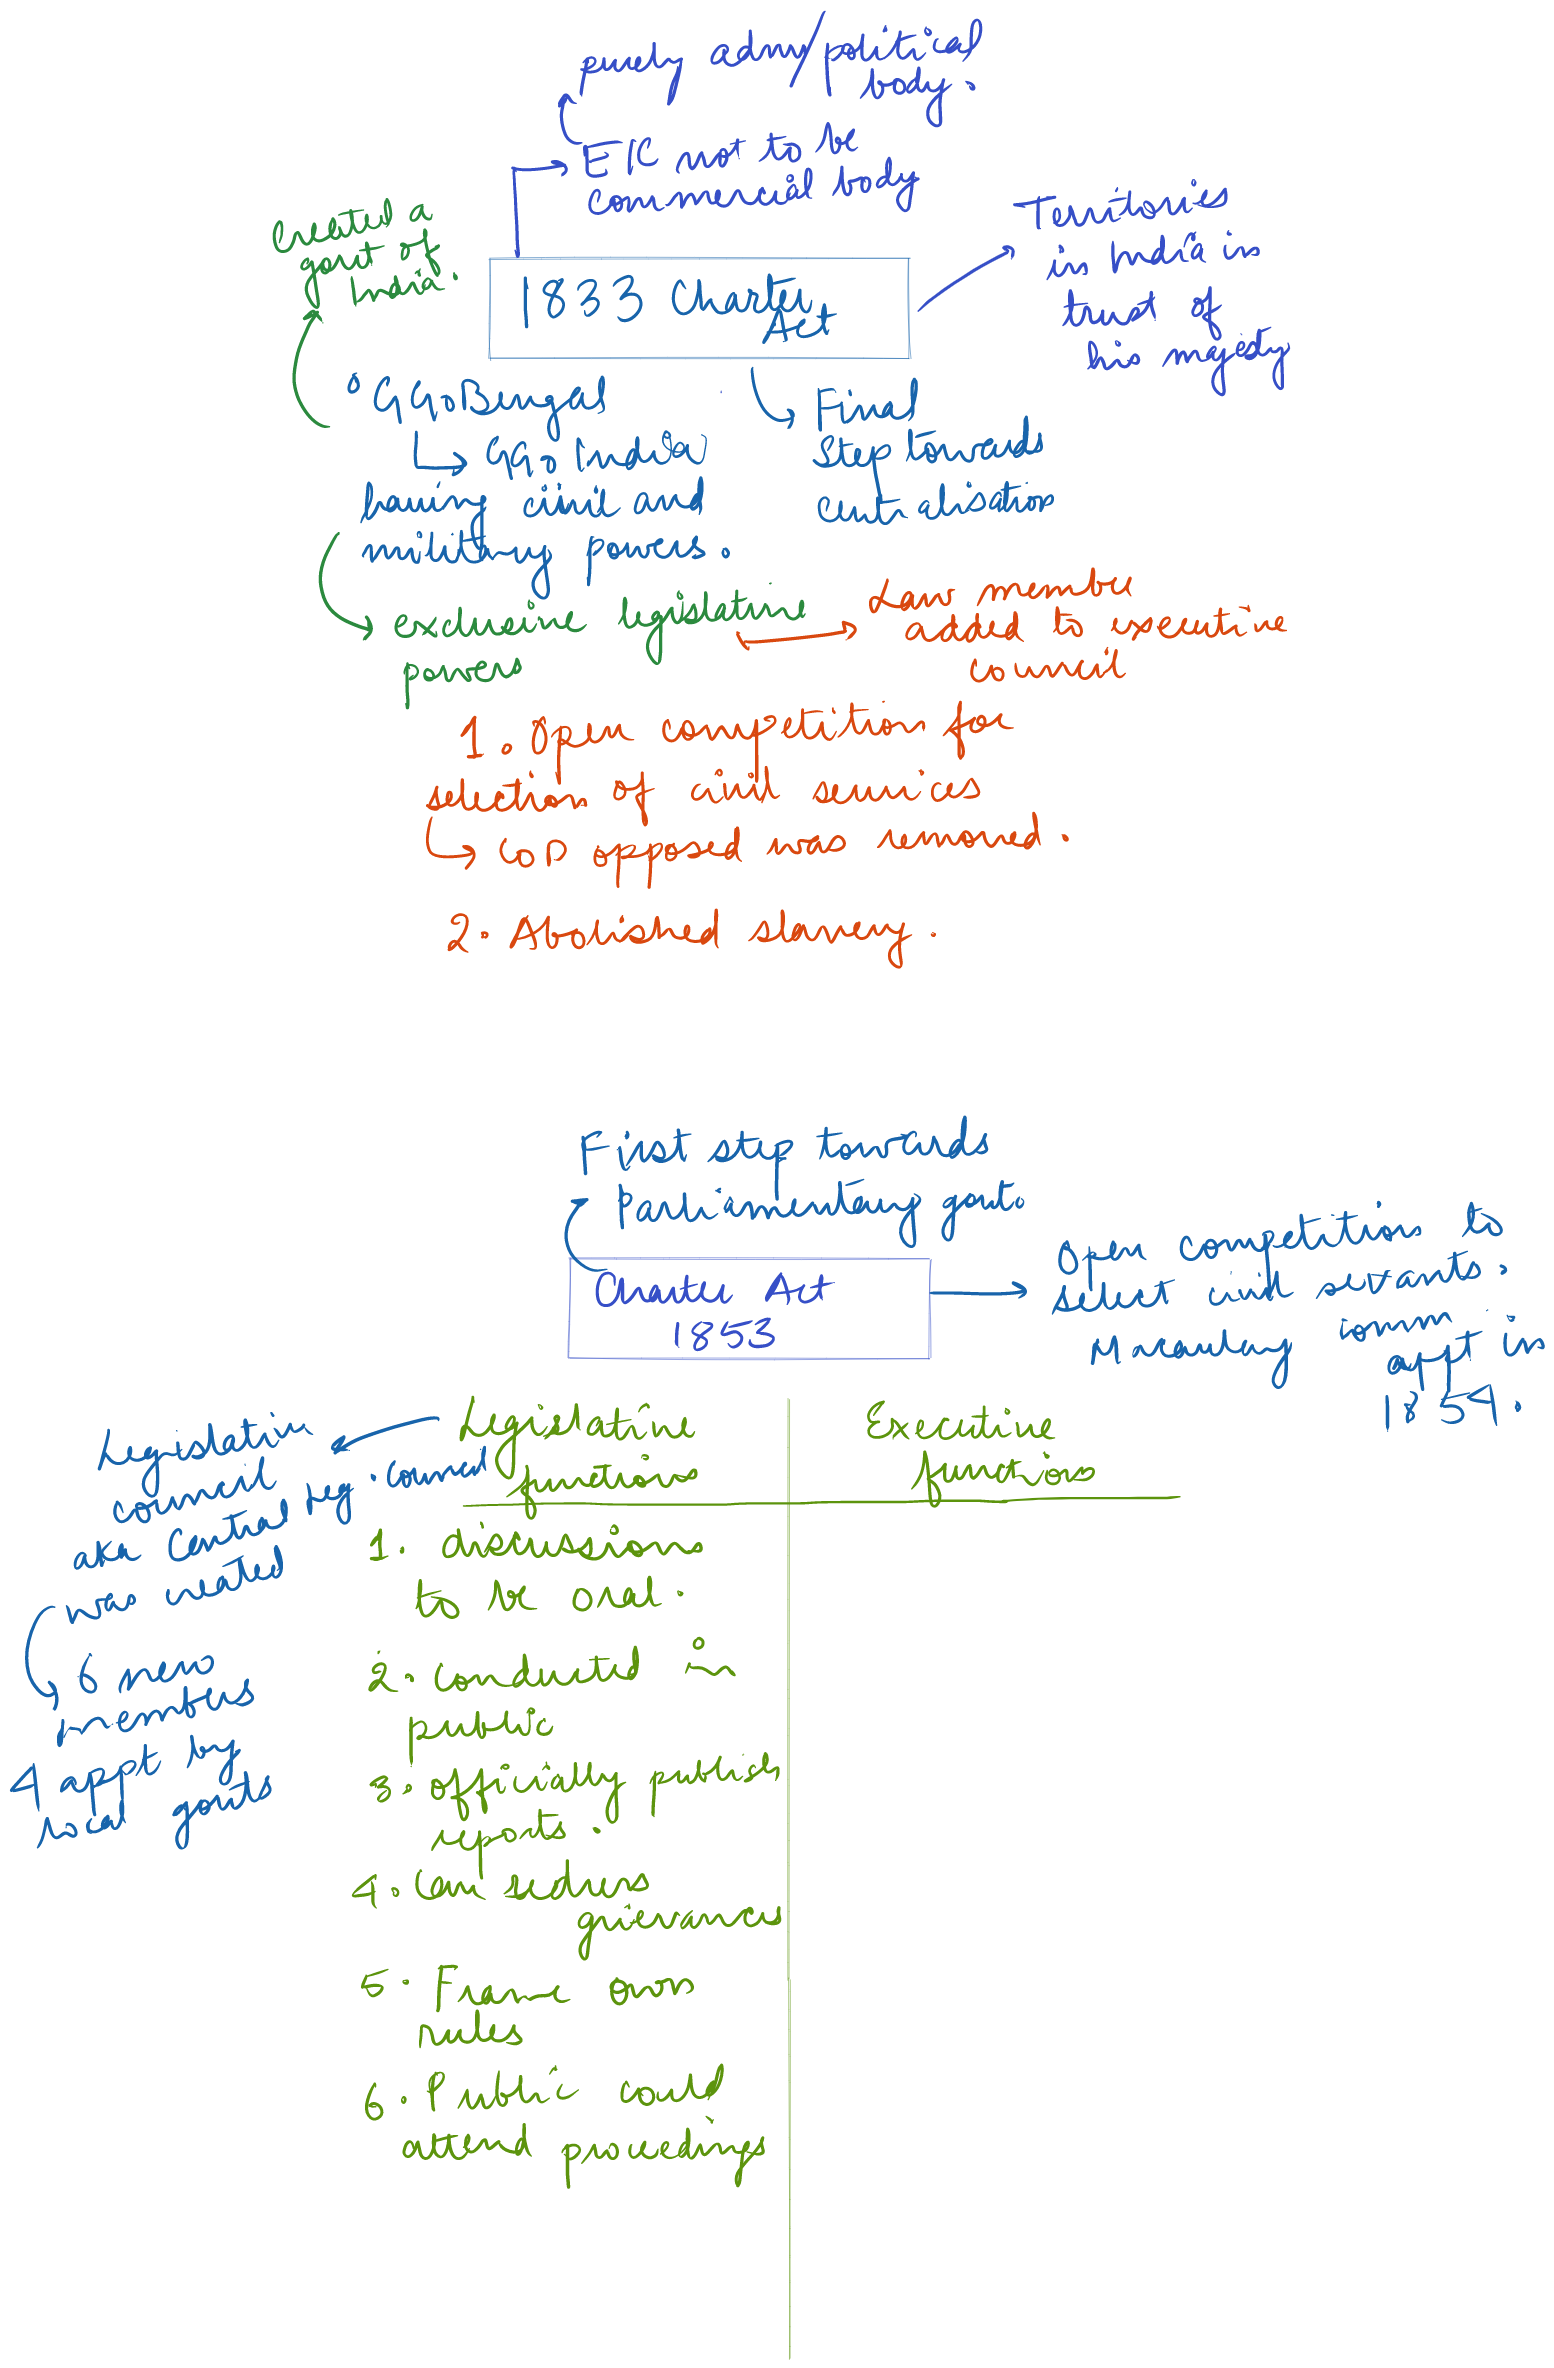 purely admn/political
body.
EIC not to be
commercial body
Created a
govt of
India.
Territories
in India in
trust of
his majesty
1833 Charter
Act
GGoBengal
GGo India
having civil and
military powers.
Final
Step towards
centralisation
exclusive legislative
powers
Law member
added to executive
council
1. Open competition for
selection of civil services
CoD opposed was removed.
2. Abolished slavery.
First step towards
Parliamentary govt.
Charter Act
1853
Open competition to
select civil servants.
Macaulay comm
appt in
1854.
Legislative
council
aka Central Leg. Council
was created
6 new
members
4 appt by
local govts
Legislative
functions
Executive
functions
1. discussions
to be oral.
2. Conducted in
public
3. officially publish
reports.
4. Can redress
grievances
5. Frame own
rules
6. Public could
attend proceedings